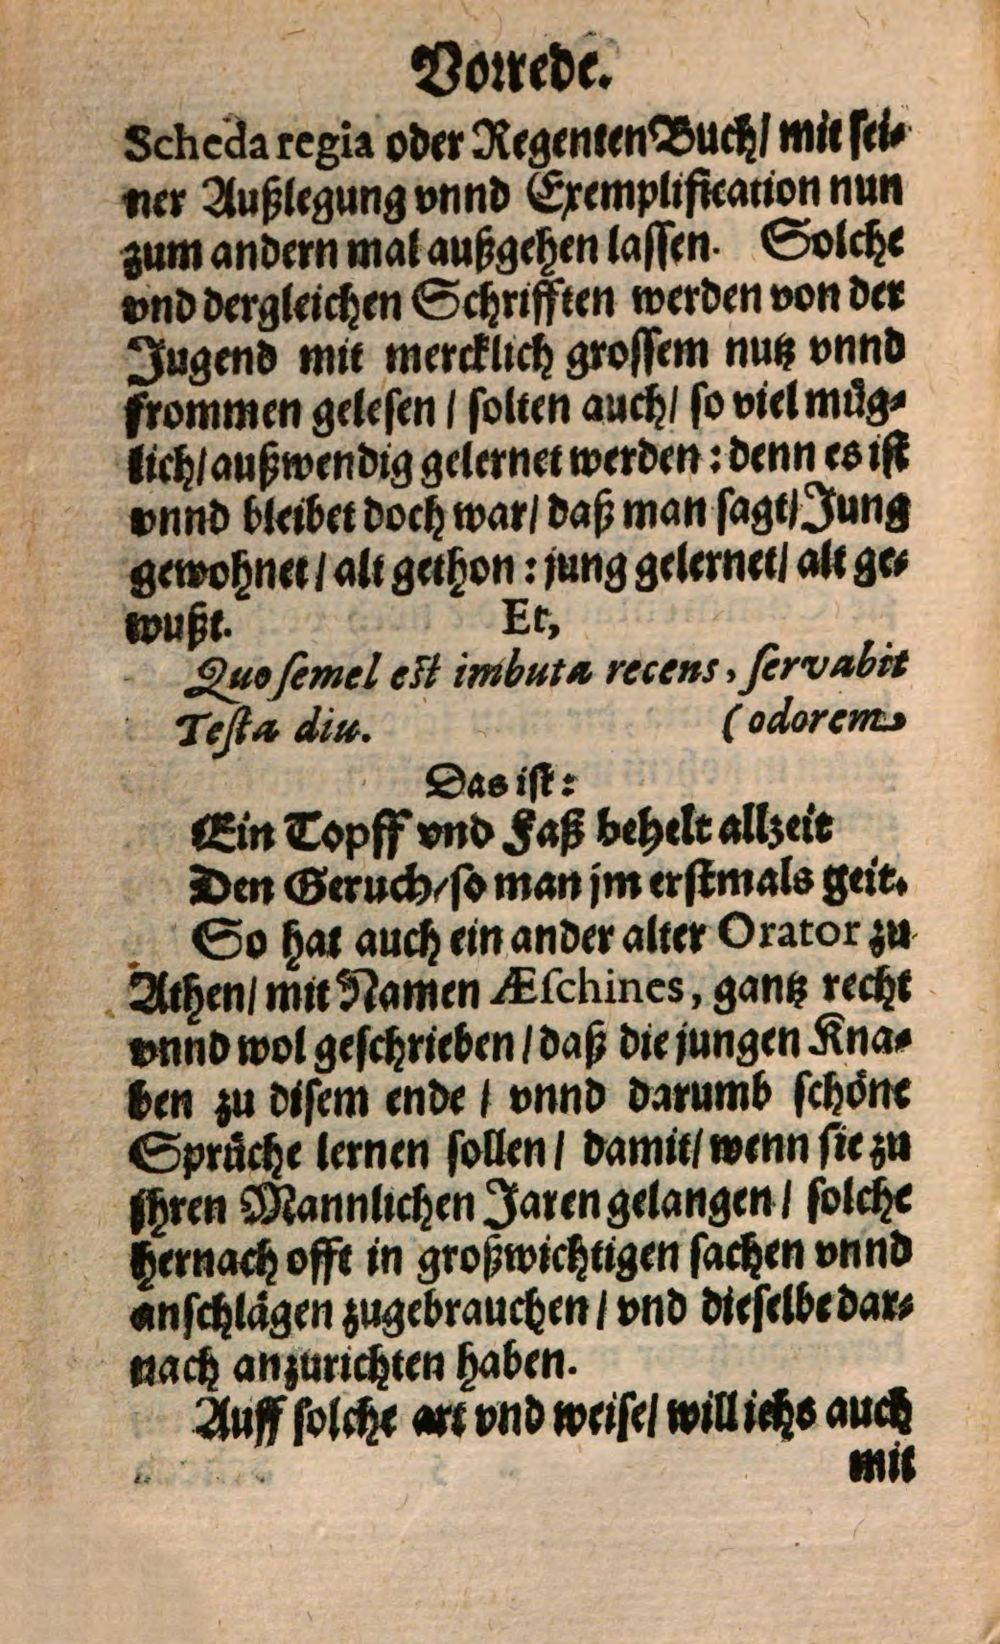 Vorrede.
Scheda regia oder Regenten Buch/ mit sei⸗
ner Außlegung vnnd Exemplification nun
zum andern mal außgehen lassen. Solche
vnd dergleichen Schrifften werden von der
Jugend mit mercklich grossem nutz vnnd
frommen gelesen / solten auch/ so viel müg⸗
lich/ außwendig gelernet werden: denn es ist
vnnd bleibet doch war/ daß man sagt/ Jung
gewohnet / alt gethon: jung gelernet/ alt ge⸗
wußt. Et,
Quo semel est imbuta recens, servabit
Testa diu. (odorem
Das ist:
Ein Topff vnd Faß behelt allzeit
Den Geruch/ so man jm erstmals geit.
So hat auch ein ander alter Orator zu
Athen/ mit Namen Æschines, gantz recht
vnnd wol geschrieben / daß die jungen Kna⸗
ben zu disem ende / vnnd darumb schöne
Sprüche lernen sollen / damit/ wenn sie zu
jhren Mannlichen Jaren gelangen / solche
hernach offt in großwichtigen sachen vnnd
anschlägen zugebrauchen / vnd dieselbe dar⸗
nach anzurichten haben.
Auff solche art vnd weise/ will ichs auch
mit